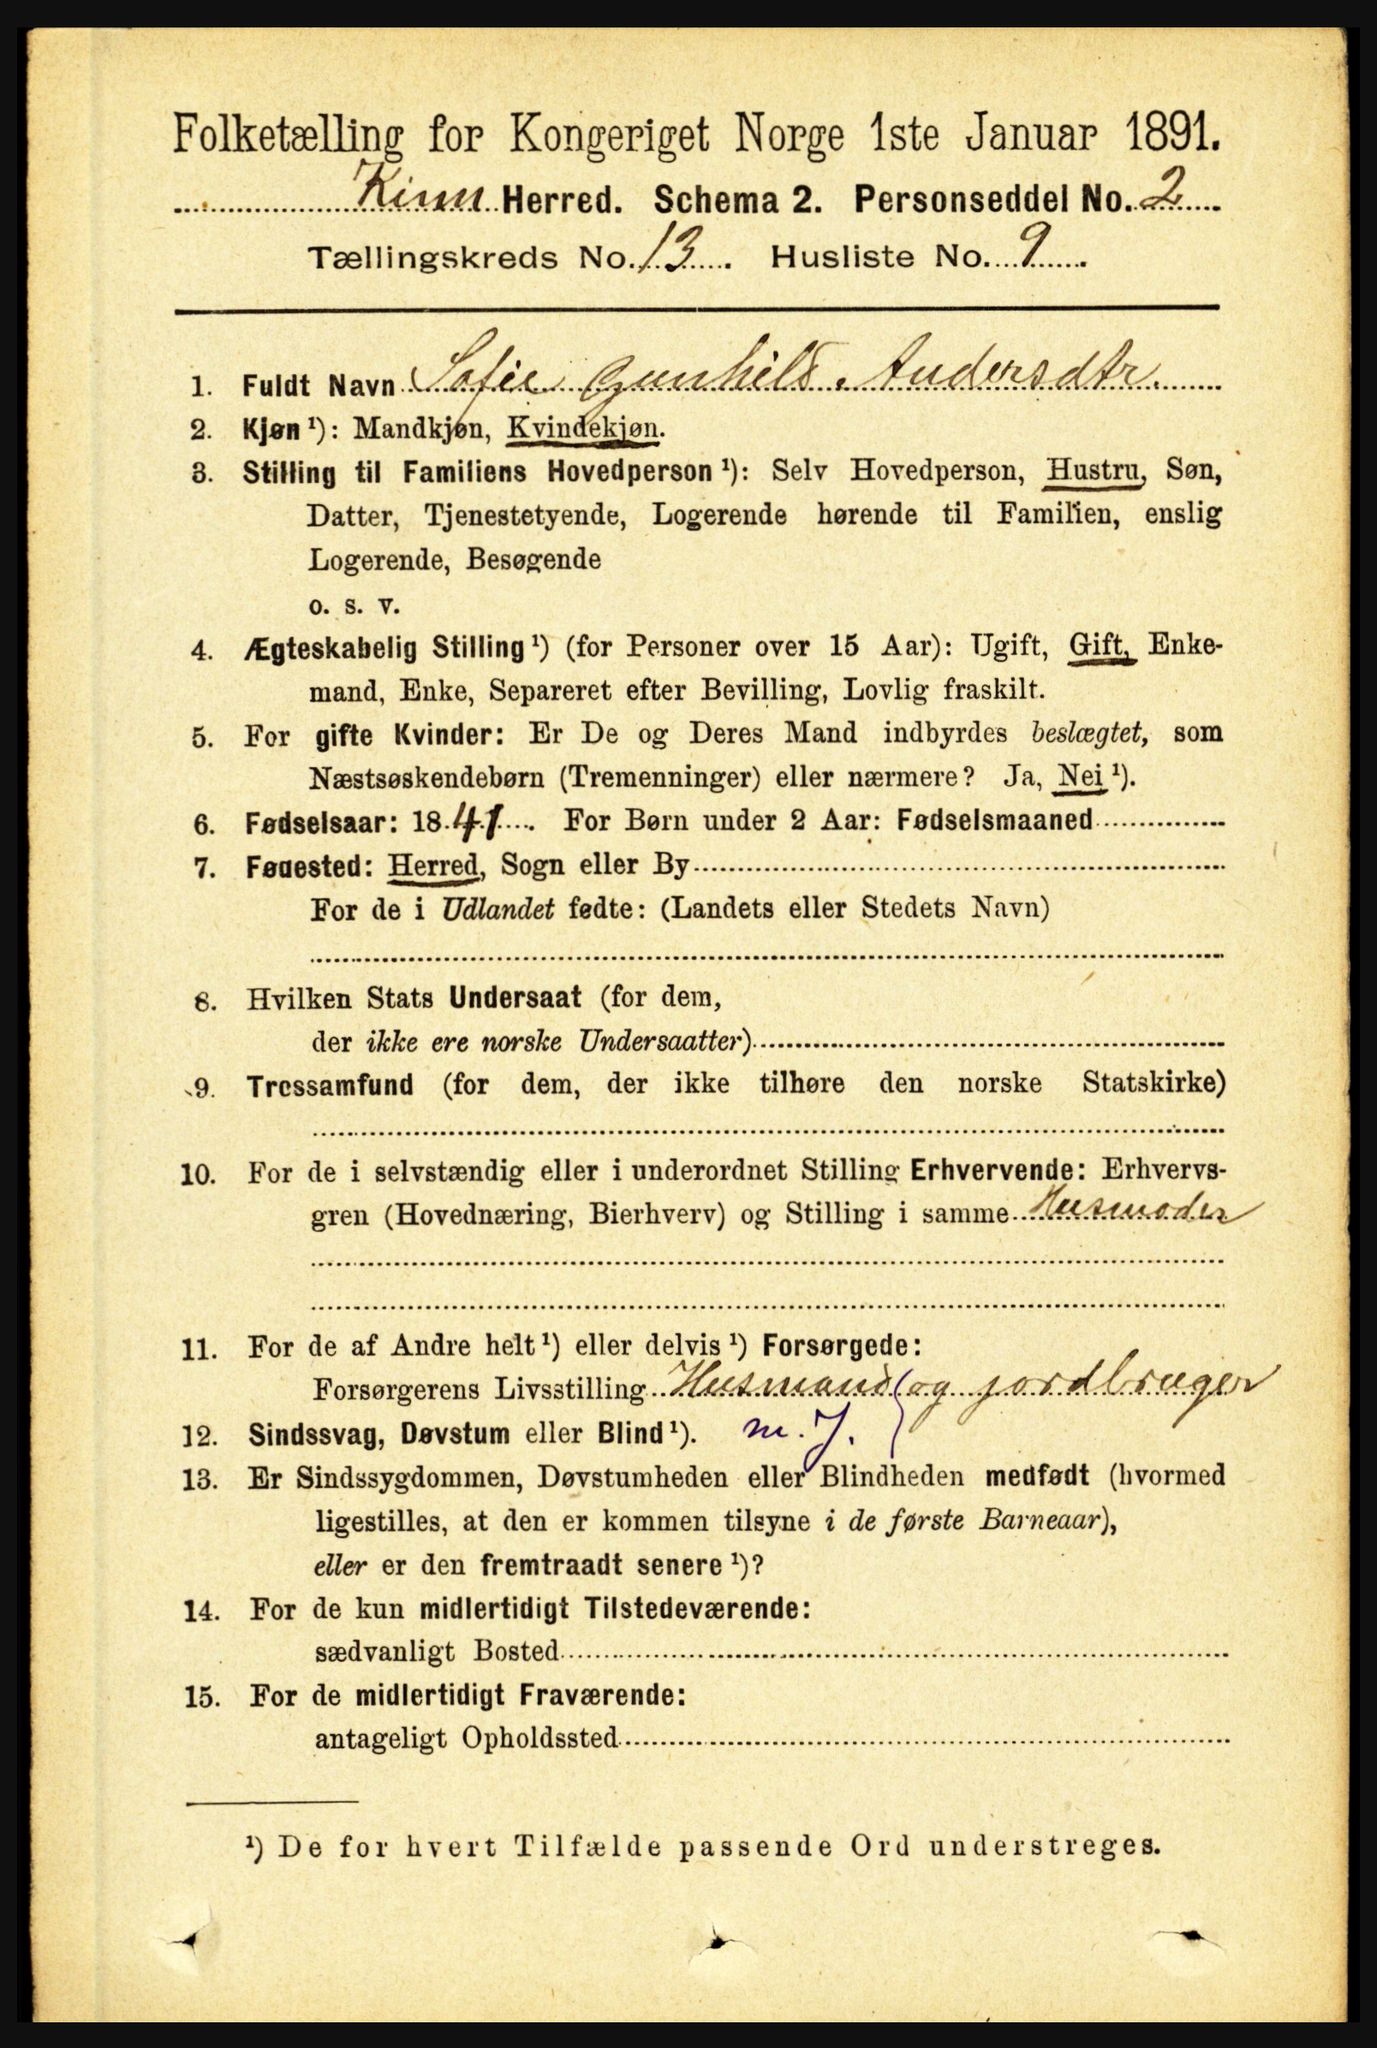 Folketælling for Kongeriget Norge 1ste Januar 1891.
Kinn Herred. Schema 2. Personseddel No. 2
Tællingskreds No. 13. Husliste No. 9
1. Fuldt Navn Sofie Gunhild Andersdtr.
2. Kjøn ¹): Mandkjøn, Kvindekjøn.
3. Stilling til Familiens Hovedperson ¹): Selv Hovedperson, Hustru, Søn,
Datter, Tjenestetyende, Logerende hørende til Familien, enslig
Logerende, Besøgende
o. s. v.
4. Ægteskabelig Stilling ¹) (for Personer over 15 Aar): Ugift, Gift, Enke-
mand, Enke, Separeret efter Bevilling, Lovlig fraskilt.
5. For gifte Kvinder: Er De og Deres Mand indbyrdes beslægtet, som
Næstsøskendebørn (Tremenninger) eller nærmere? Ja, Nei ¹).
6. Fødselsaar: 1841. For Børn under 2 Aar: Fødselsmaaned
7. Føuested: Herred, Sogn eller By
For de i Udlandet fødte: (Landets eller Stedets Navn)
8. Hvilken Stats Undersaat (for dem,
der ikke ere norske Undersaatter)
9. Trossamfund (for dem, der ikke tilhøre den norske Statskirke)
10. For de i selvstændig eller i underordnet Stilling Erhvervende: Erhvervs-
gren (Hovednæring, Bierhverv) og Stilling i samme Husmoder
11. For de af Andre helt ¹) eller delvis ¹) Forsørgede:
Forsørgerens Livsstilling Husmand og jordbruger
12. Sindssvag, Døvstum eller Blind ¹). m. J.
13. Er Sindssygdommen, Døvstumheden eller Blindheden medfødt (hvormed
ligestilles, at den er kommen tilsyne i de første Barneaar),
eller er den fremtraadt senere ¹)?
14. For de kun midlertidigt Tilstedeværende:
sædvanligt Bosted
15. For de midlertidigt Fraværende:
antageligt Opholdssted
¹) De for hvert Tilfælde passende Ord understreges.